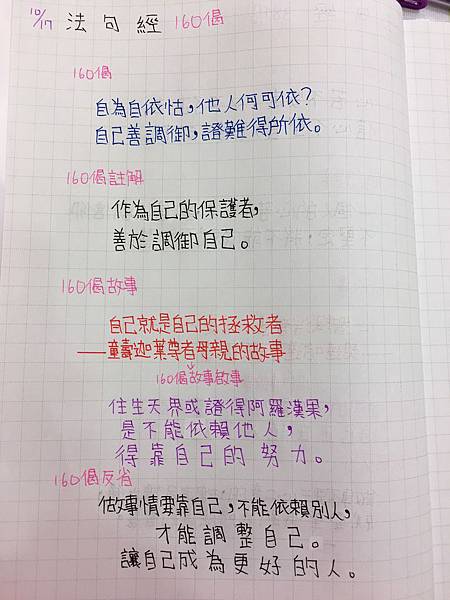 10/17 法句經 160偈
160偈
自為自依怙，他人何可依？
自己善調御，證難得所依。
160偈註解
作為自己的保護者，
善於調御自己。
160偈故事
自己就是自己的拯救者
——童壽迦葉尊者母親的故事
160偈故事啟事
住生天界或證得阿羅漢果，
是不能依賴他人，
得靠自己的努力。
160偈反省
做事情要靠自己，不能依賴別人，
才能調整自己。
讓自己成為更好的人。